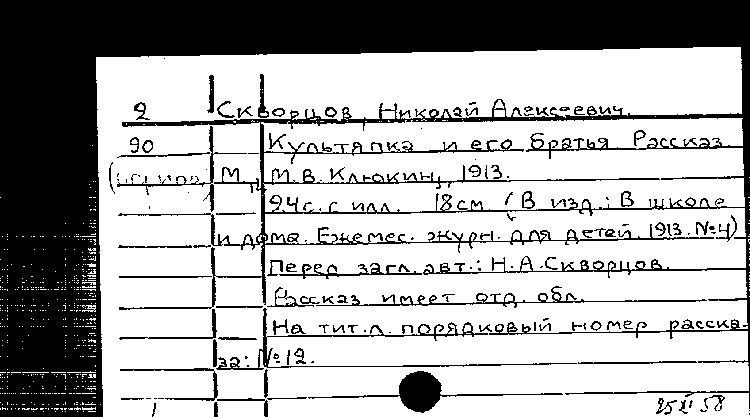 2 Скворцов, Николай Алексеевич.
90 Культяпка и его братья. Рассказ.
М., М.В. Клюкин, 1913.
94 с. с илл. 18 см. (В изд.: В школе
и дома. Ежемес. журн. для детей. 1913. №4)
Перед загл. авт.: Н.А. Скворцов.
Рассказ имеет отд. обл.
На тит. л. порядковый номер расска-
за: №12.
25 XI 58